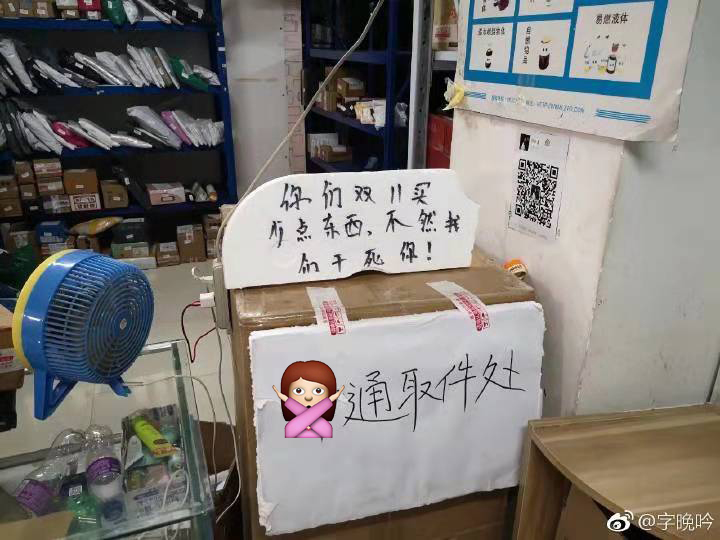 易燃液体
自燃物品
你们双11买
少点东西,不然我
们干死你!
通取件处
@字晚吟